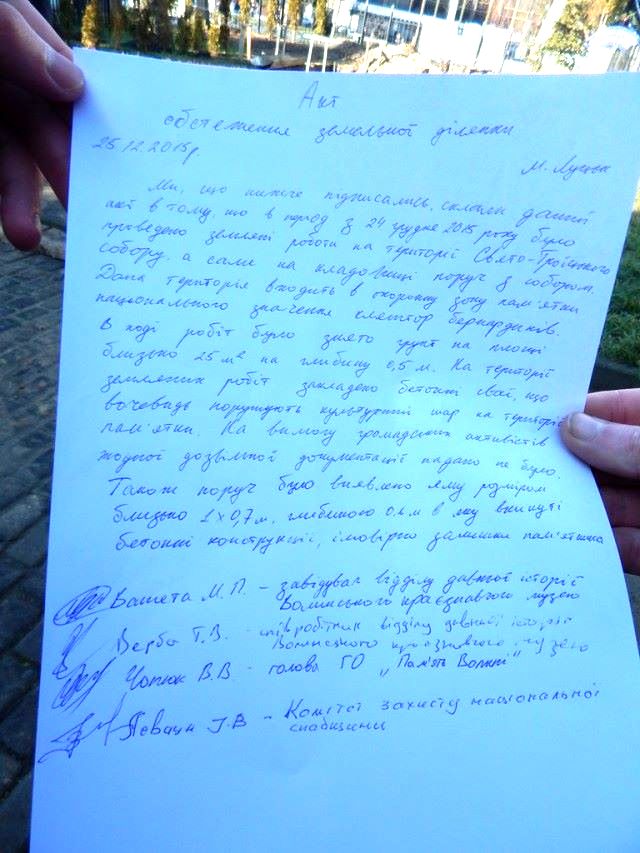 Акт
обстеження земельної ділянки
25.12.2015р.
м. Луцьк
Ми, що нижче підписались, склали даний
акт в тому, що в період з 24 грудня 2015 року було
проведено земляні роботи на території Свято-Троїцького
собору, а саме на кладовищі поруч з собором.
Дана територія входить в охоронну зону пам'ятки
національного значення кляштор бернардинів.
В ході робіт було знято грунт на площі
близько 25 м² на глибину 0,5 м. На території
земляних робіт закладено бетонні сваї, що
вочевидь порушують культурний шар на території
пам'ятки. На вимогу громадських активістів
жодної дозвільної документації надано не було.
Також поруч було виявлено яму розміром
близько 1 х 0,7 м. глибиною м в яку вкинуті
бетонні конструкції, імовірно залишки пам'ятника
Вашета М.П. – завідувач відділу давньої історії
Волинського краєзнавчого музею
Верба Т.В. – співробітник відділу давньої історії
Волинського краєзнавчого музею
В.В - голова ГО „Пам'ять Волині"
І.В – Комітет захисту національної
спадщини